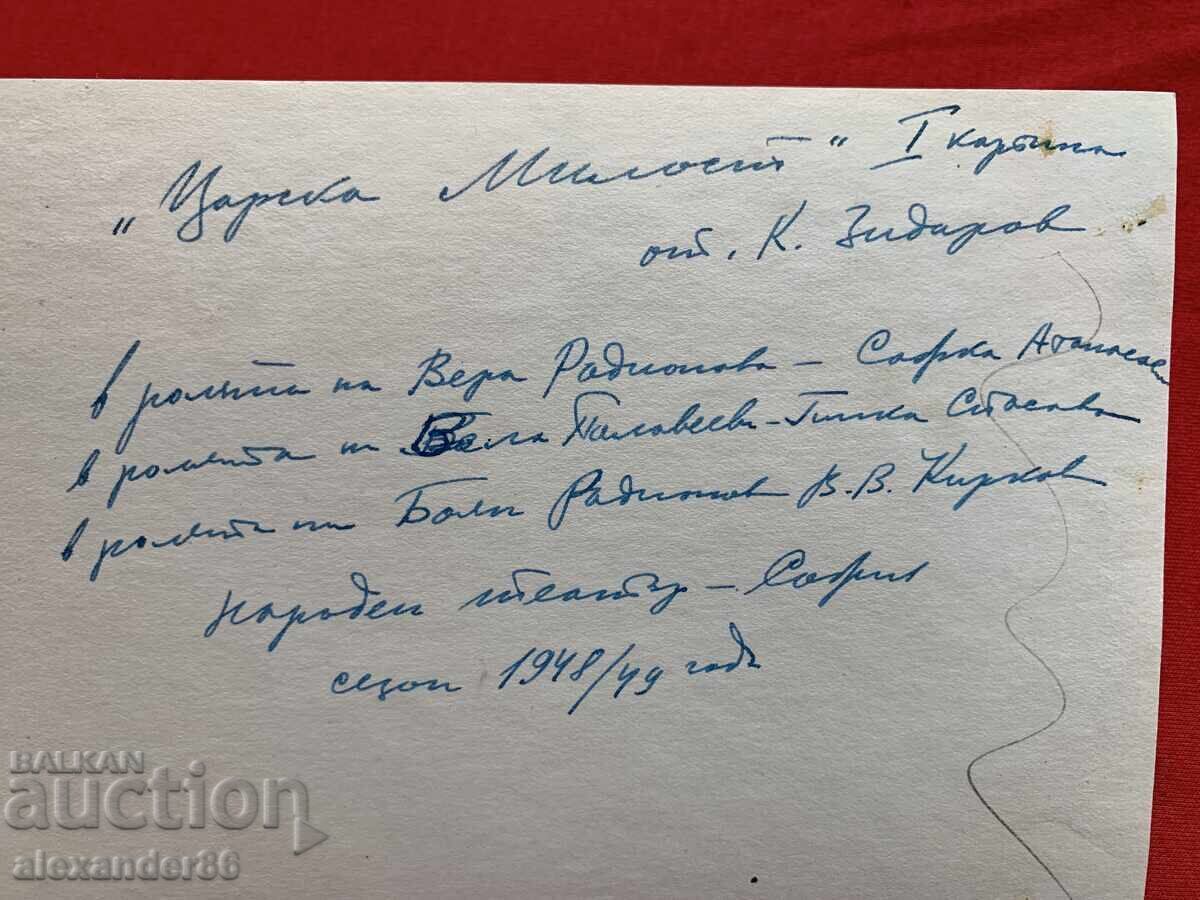 „Царска Милост" I картина
от К. Зидаров
в ролята на Вера Радионова – Софка Атанасова
в ролята на Бела Палавеева – Гинка Стасова
в ролята на Боян Радионов В. В. Кирков
Народен театър – София
сезон 1948/49 год
BALKAN
auction
alexander86